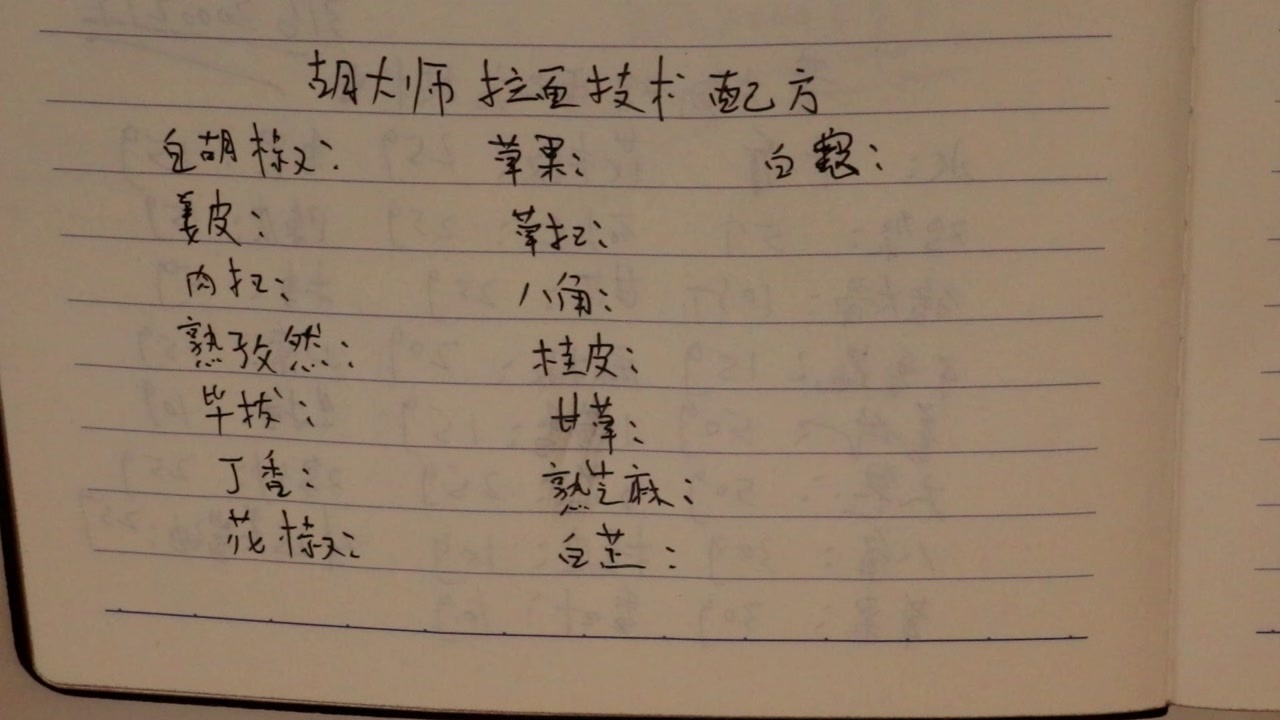 胡大师拉面技术配方
白胡椒： 草果： 白蔻：
姜皮： 草扣：
肉扣： 八角：
熟孜然： 桂皮：
毕拔： 甘草：
丁香： 熟芝麻：
花椒： 白芷：